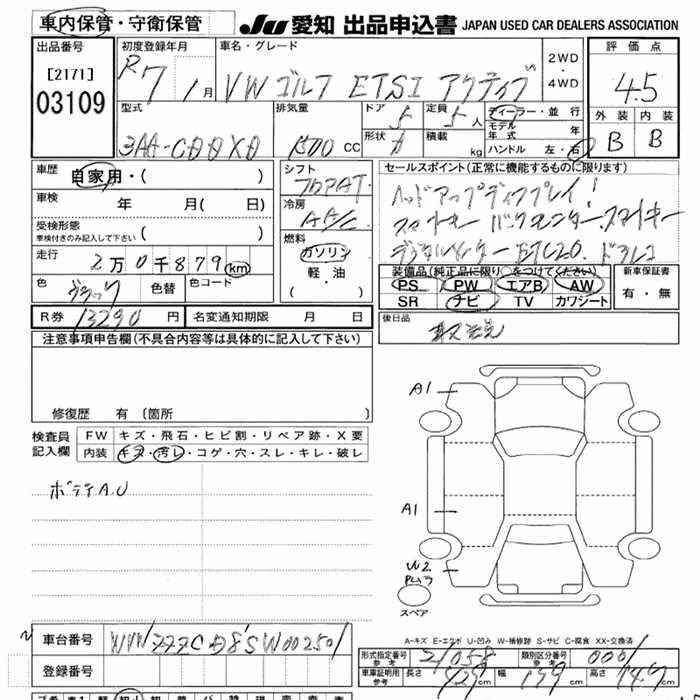 車内保管・守衛保管
JU 愛知 出品申込書 JAPAN USED CAR DEALERS ASSOCIATION
出品番号 初度登録年月 車名・グレード 評価点
[2171] R7 1月 VW ゴルフ ETSI アクティブ 2WD・4WD 4.5
03109
型式 排気量 ドア 5 定員 5人 ディーラー・並行 外装 内装
形状 積載 kg モデル年式 年
1500 CC ハンドル 左・右 B B
車歴 自家用・( ) シフト セールスポイント(正常に機能するものに限ります)
フロアAT ヘッドアップディスプレイ!
車検 年 月( 日) 冷房 AAC
受検形態 車検付きのみ記入して下さい ( ) 燃料
走行 2万0千879 km ガソリン デジタルインナー ETC2.0 ドラレコ
軽・油
色 ブラック 色替 色コード ( ・ ) 装備品(純正品に限り○をつけてください) 新車保証書
PS PW エアB AW 有・無
SR ナビ TV カワシート
R券 13290円 名変通知期限 月 日 後日品
注意事項申告欄(不具合内容等は具体的に記入して下さい) 取説
A1
修復歴 有(箇所
検査員記入欄 FW キズ・飛石・ヒビ割・リペア跡・X要
内装 キズ・汚レ・コゲ・穴・スレ・キレ・破レ
ボデテA.U
A1
W2
スペア
A-キズ E-エクボ U-凹み W-補修跡 S-サビ C-腐食 XX-交換済
車台番号 形式指定番号 参考 21058 類別区分番号 参考 0001
登録番号 車庫証明用 参考 長さ 429cm 幅 179cm 高さ 147cm